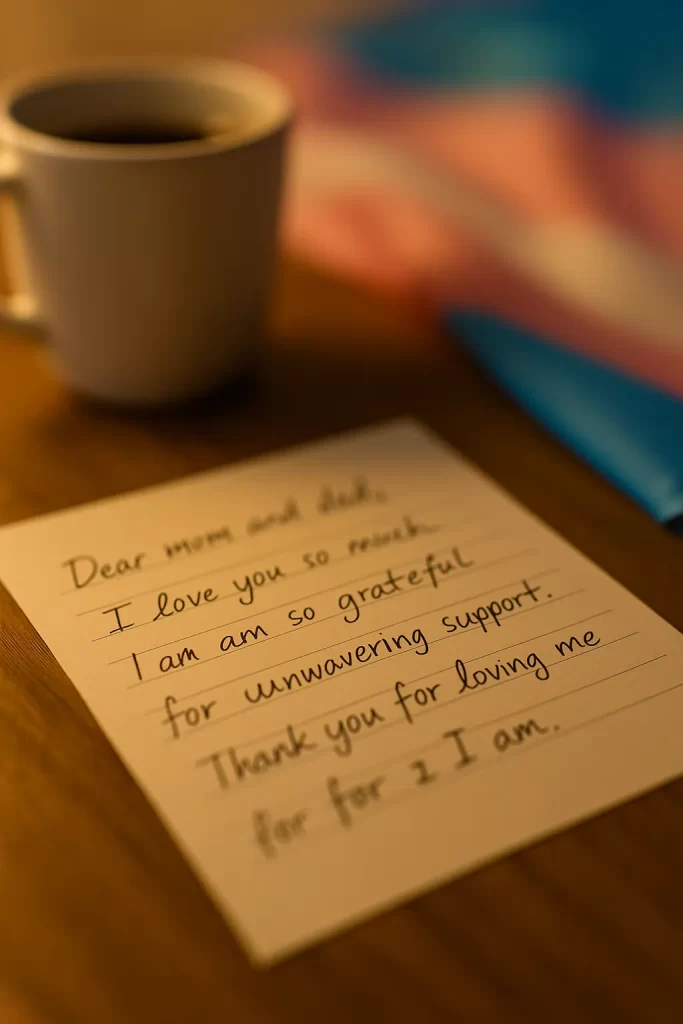 Dear mom and dad,
I love you so much
I am am so grateful
for unwavering support.
Thank you for loving me
for for I I am.